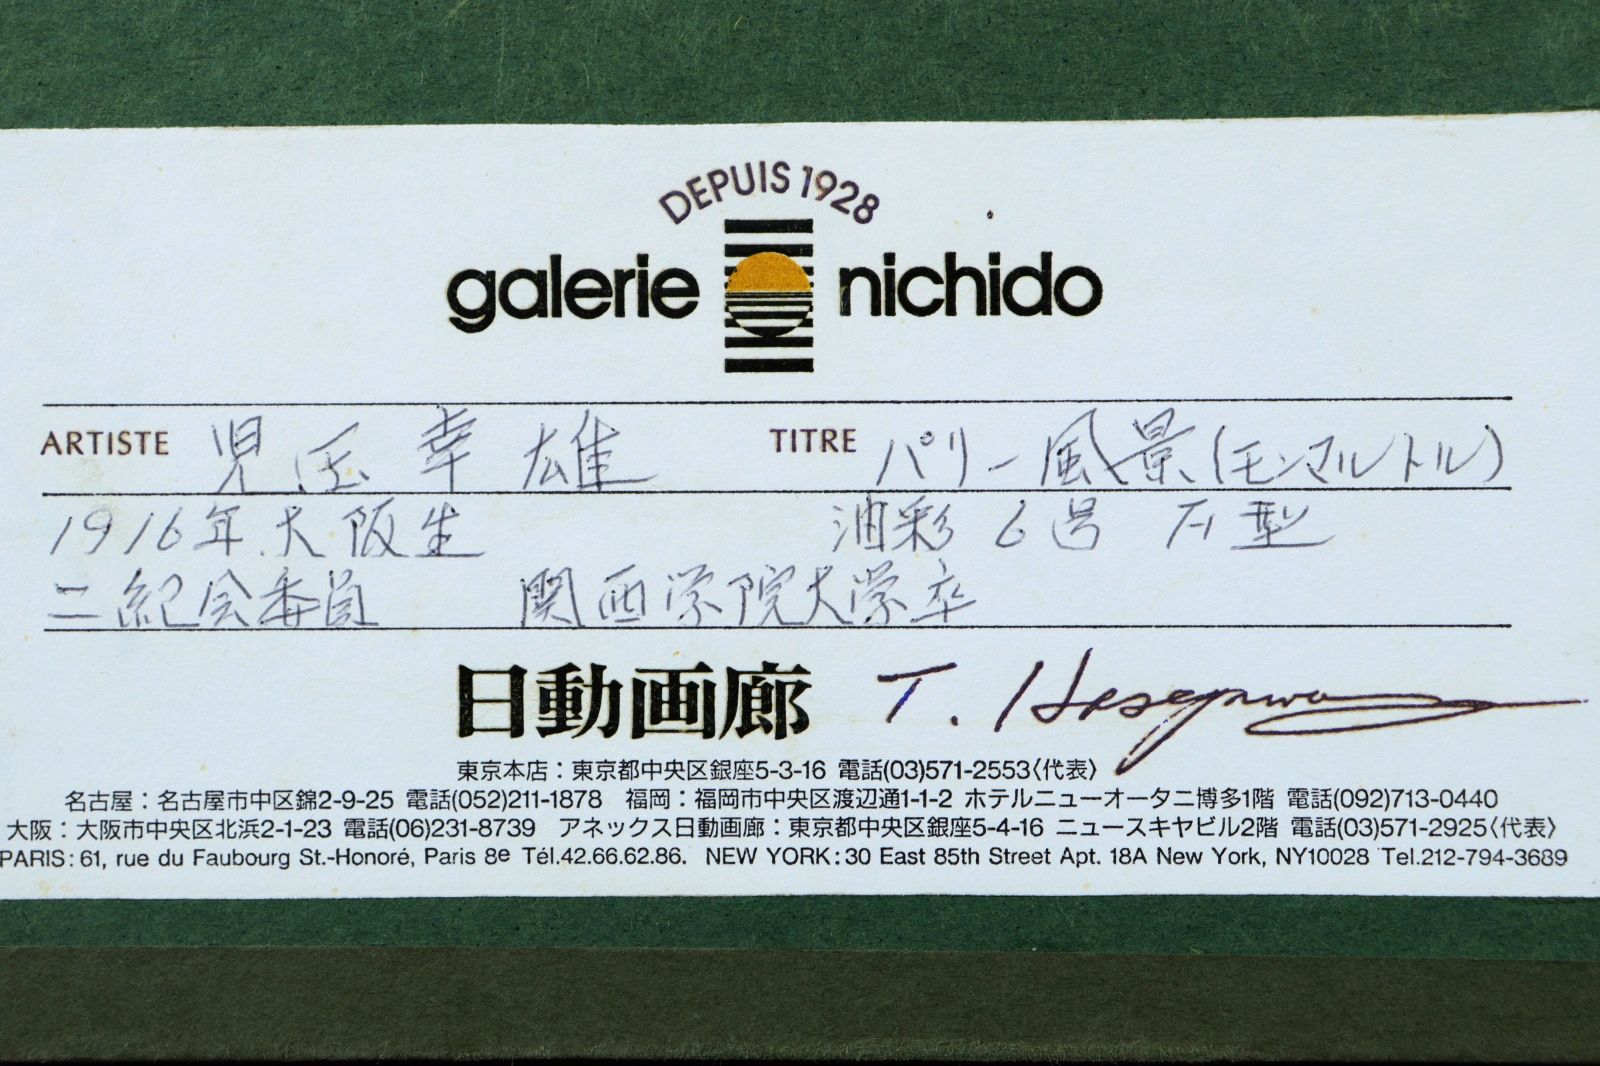 DEPUIS 1928
galerie nichido
ARTISTE 児玉幸雄 TITRE パリー風景(モンマルトル)
1916年大阪生 油彩 6号 F型
二紀会委員 関西学院大学卒
日動画廊 T. Hasegawa
東京本店：東京都中央区銀座5-3-16 電話(03)571-2553〈代表〉
名古屋：名古屋市中区錦2-9-25 電話(052)211-1878 福岡：福岡市中央区渡辺通1-1-2 ホテルニューオータニ博多1階 電話(092)713-0440
大阪：大阪市中央区北浜2-1-23 電話(06)231-8739 アネックス日動画廊：東京都中央区銀座5-4-16 ニュースキヤビル2階 電話(03)571-2925〈代表〉
PARIS: 61, rue du Faubourg St.-Honoré, Paris 8e Tél.42.66.62.86. NEW YORK: 30 East 85th Street Apt. 18A New York, NY10028 Tel.212-794-3689